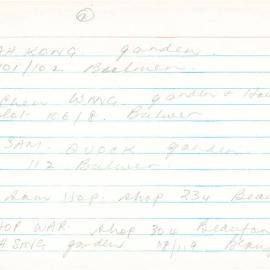 2
AH KONG garden.
101/102 Bulwer
Chen WING. garden + Ho
lot 106/8. Bulwer
SAM. QUOCK garden
112 Bulwer
Sam Hop. shop 234 Beau
HOP WAR. shop 304 Beaufor
H SING garden 118/119 Beau